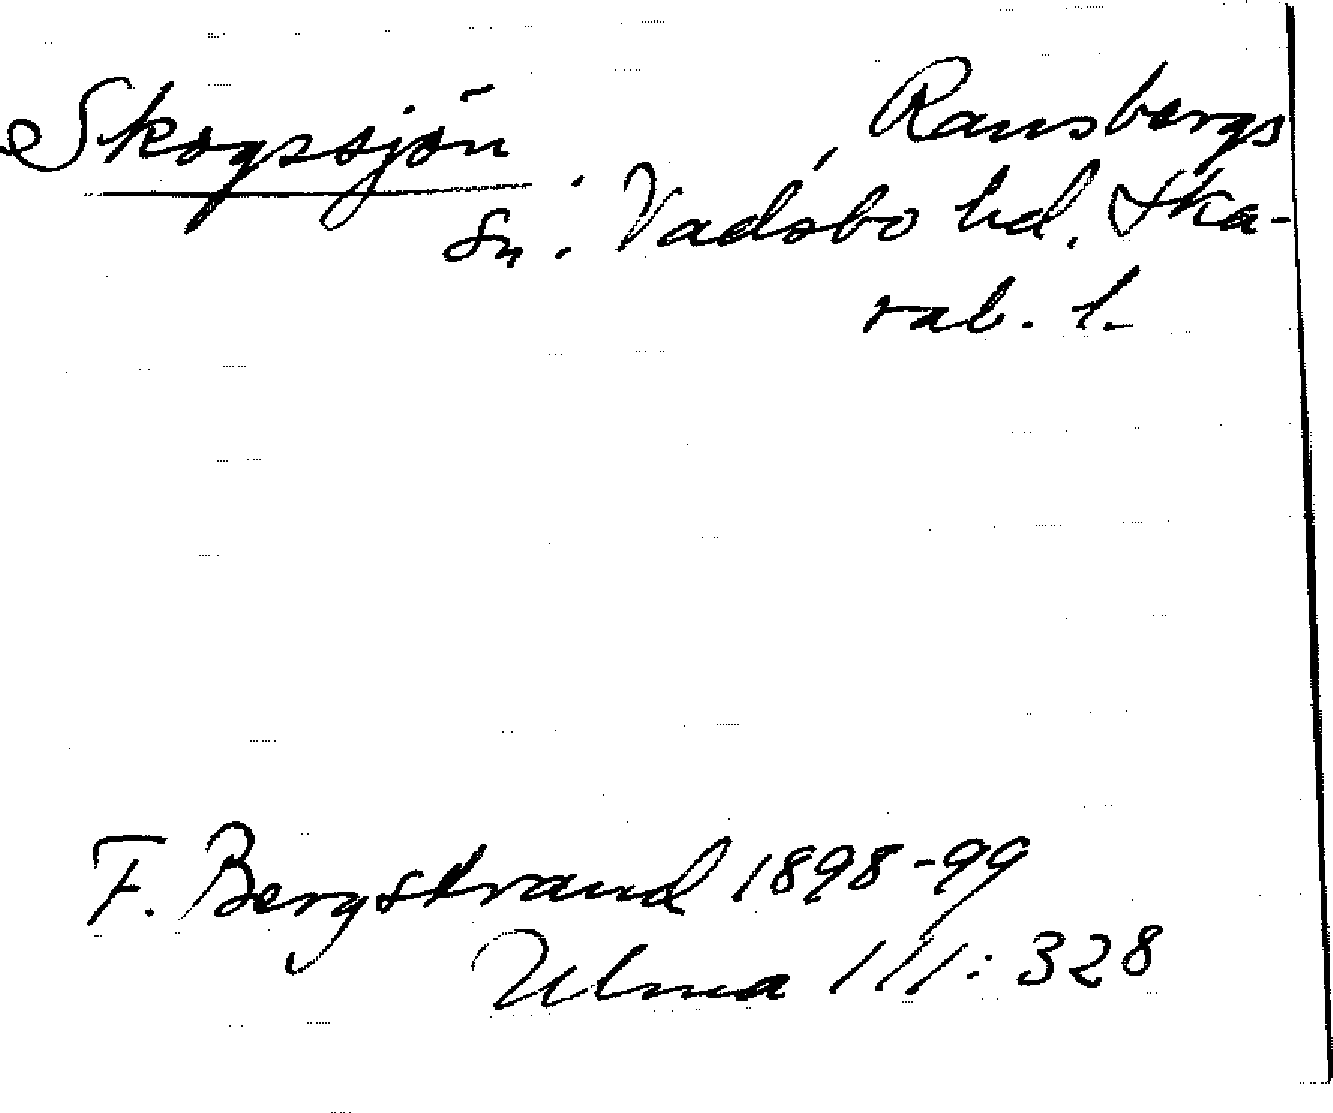 Skogssjön Ransbergs
sn. Vadsbo hd, Ska-
rab. l.
F. Bergstrand 1898-99
Ulma 111: 328